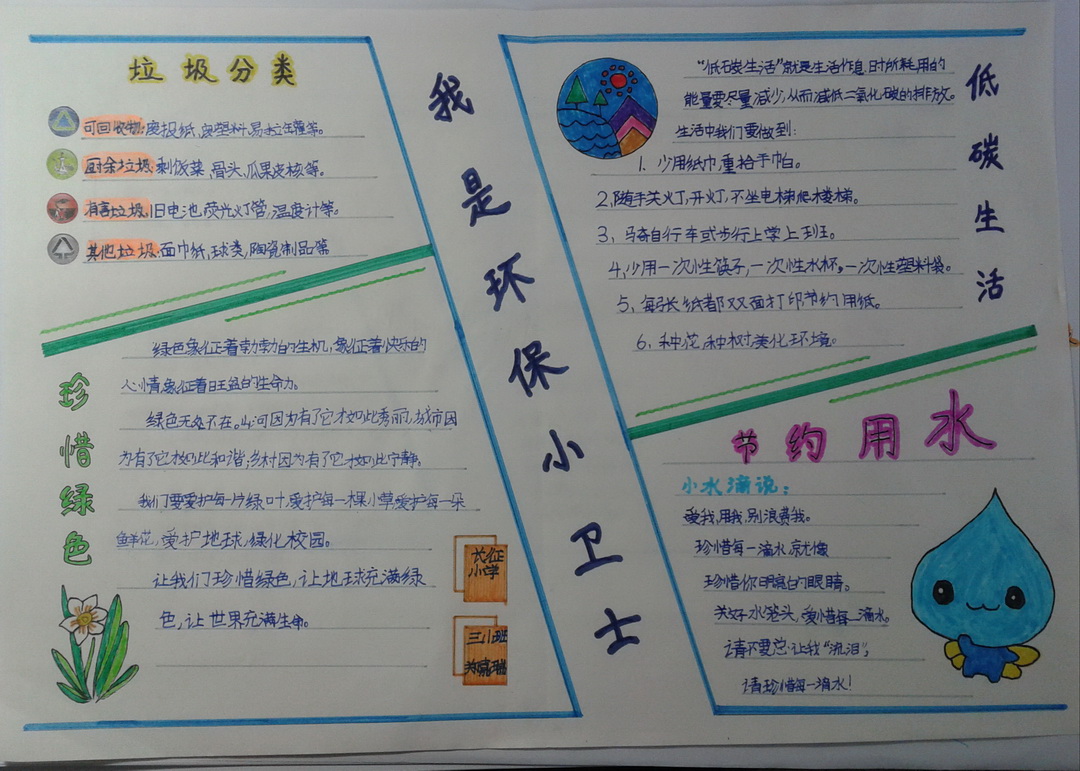 我是环保小卫士
垃圾分类
可回收物:废报纸,废塑料,易拉罐等。
厨余垃圾:剩饭菜,骨头,瓜果皮核等。
有害垃圾:旧电池,荧光灯管,温度计等。
其他垃圾:面巾纸,球类,陶瓷制品等
珍惜绿色
绿色象征着勃勃的生机,象征着快乐的
心情,象征着旺盛的生命力。
绿色无处不在。山河因为有了它才如此秀丽,城市因
为有了它才如此和谐;乡村因为有了它才如此宁静。
我们要爱护每一片绿叶,爱护每一棵小草,爱护每一朵
鲜花,爱护地球,绿化校园。
让我们珍惜绿色,让地球充满绿
色,让世界充满生命。
长征
小学
三小班
低碳生活
“低碳生活”就是生活作息时所耗用的
能量要尽量减少,从而减低二氧化碳的排放。
生活中我们要做到:
1. 少用纸巾,重拾手帕。
2,随手关火丁,开灯,不坐电梯爬楼梯。
3,马奇自行车或步行上学上班。
4,少用一次性筷子,一次性水杯,一次性塑料袋。
5、每张纸都双面打印节约用纸。
6、种花,种树,美化环境。
节约用水
小水滴说:
爱我,用我,别浪费我。
珍惜每一滴水就像
珍惜你明亮的眼睛。
关好水笼头,爱惜每一滴水。
请不要总让我“流泪”,
请珍惜每一滴水!